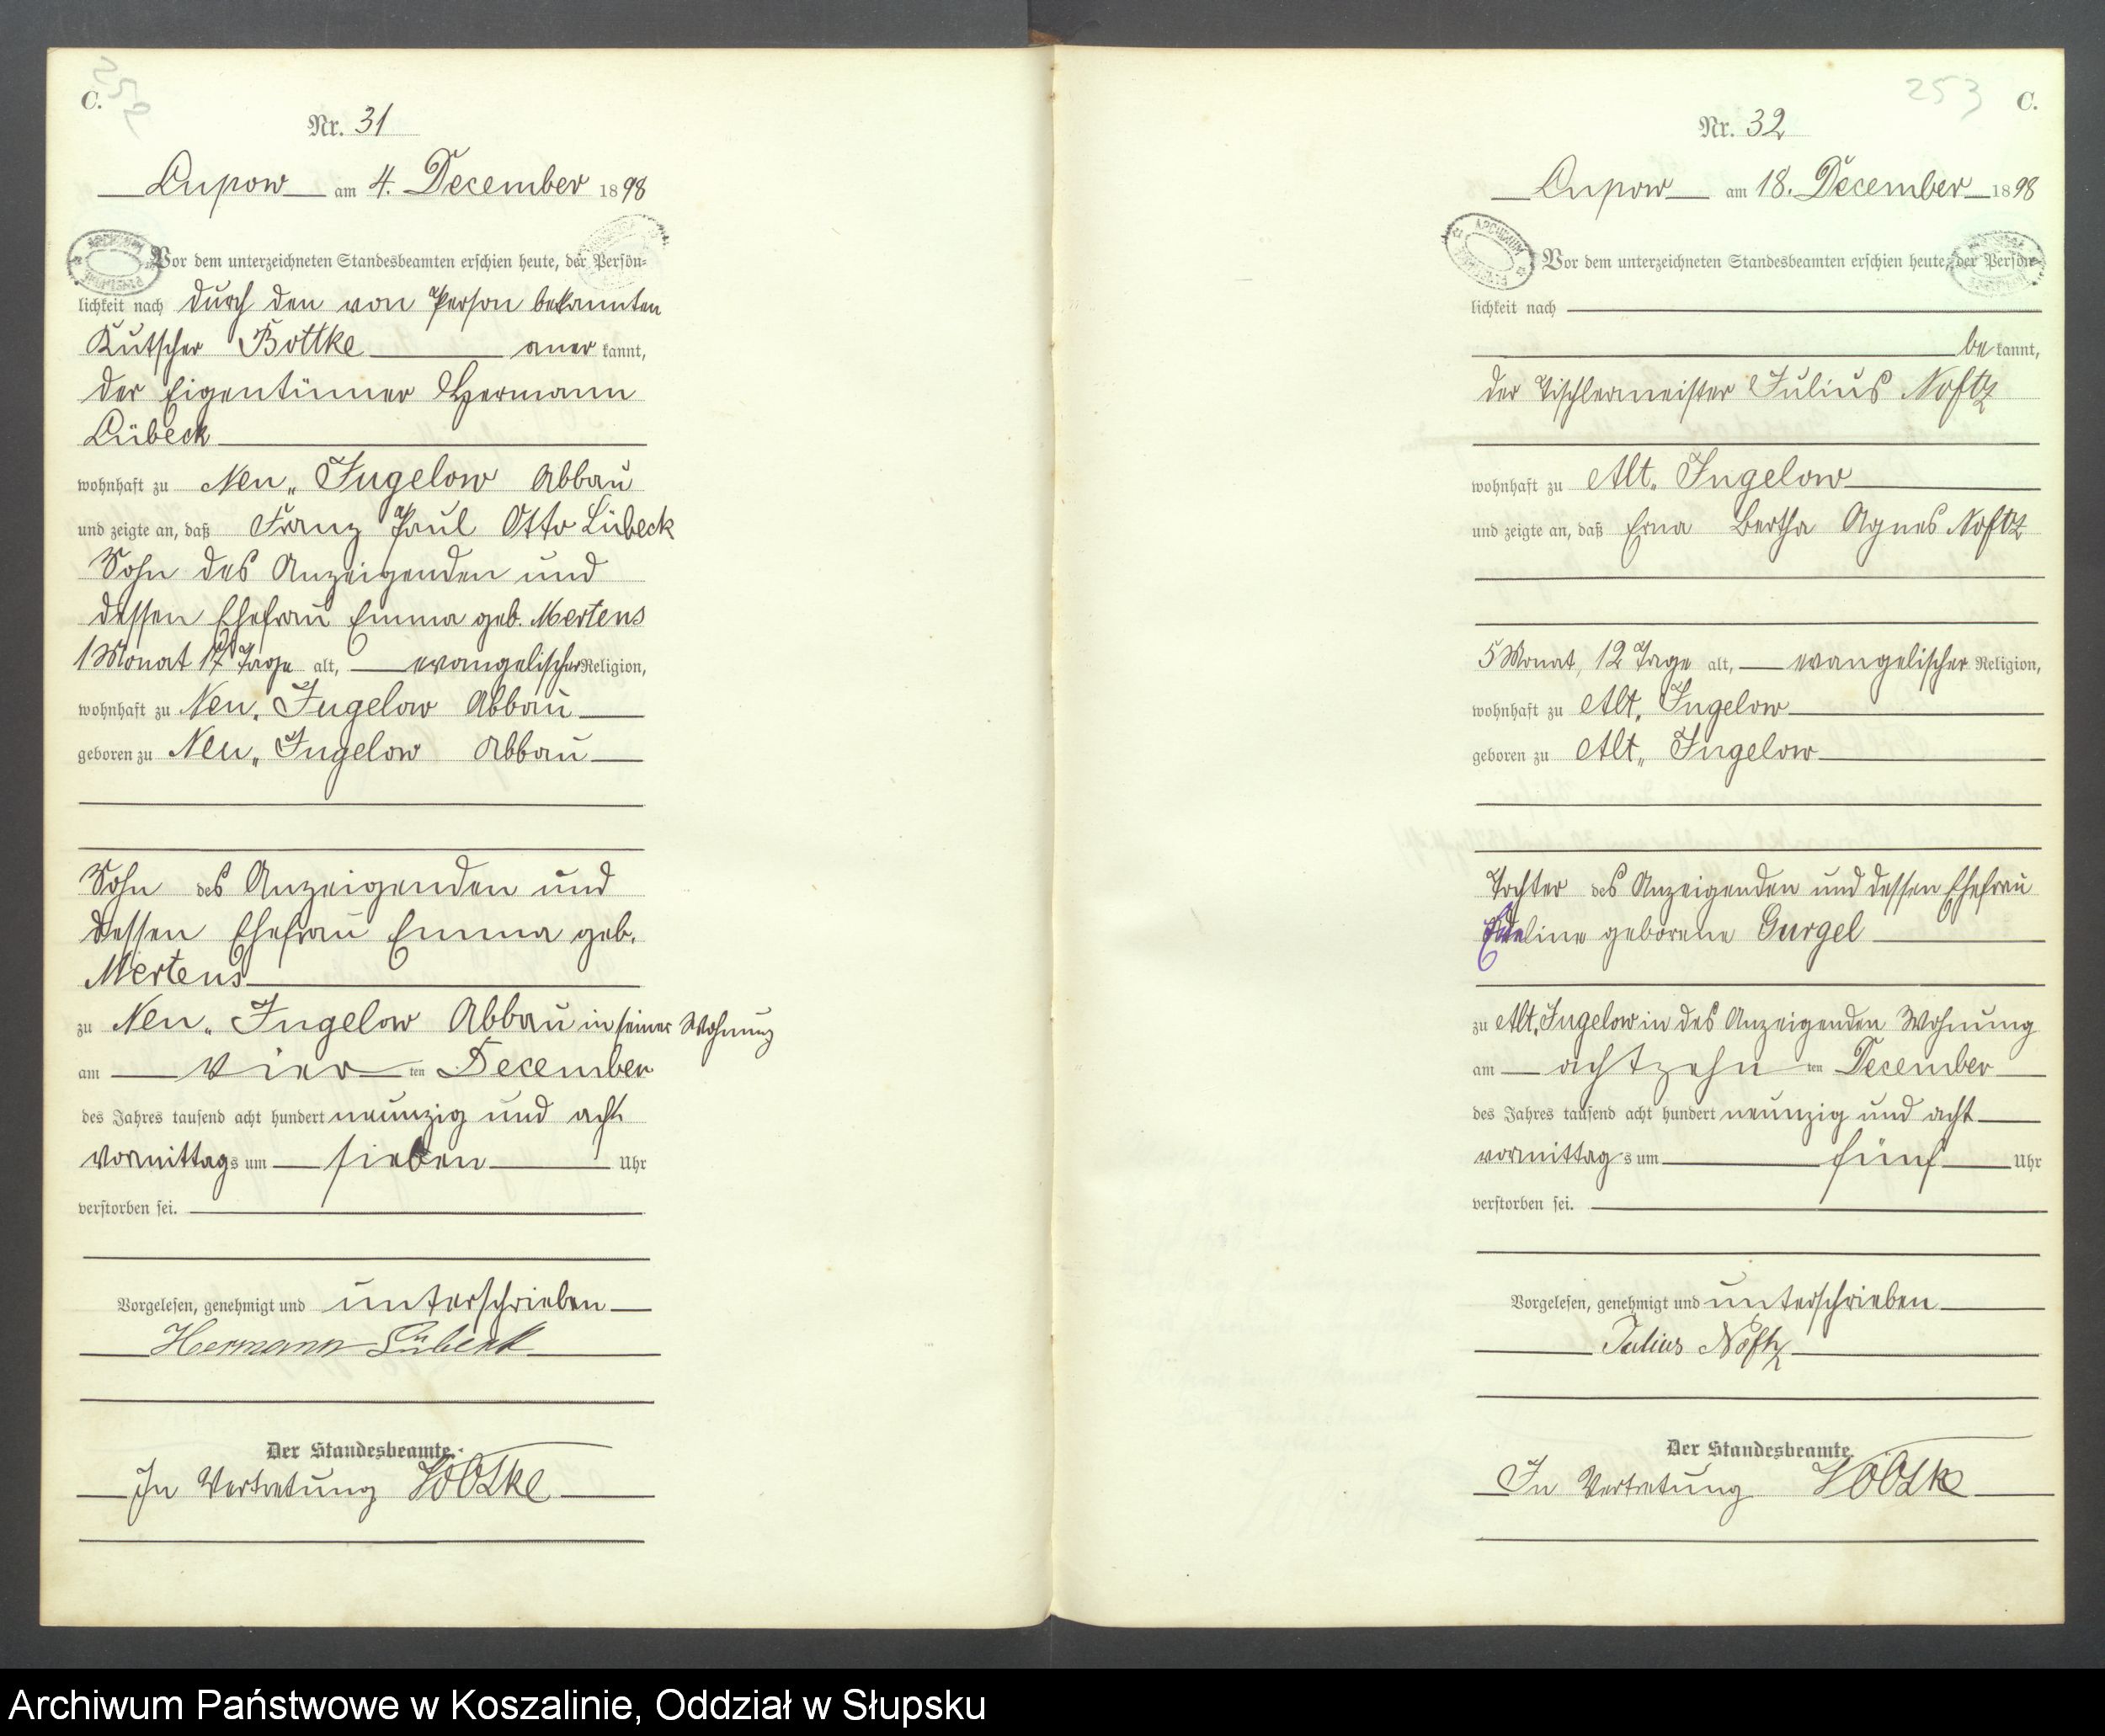 252
C.
Nr. 31
Lupow am 4. December 1898
Vor dem unterzeichneten Standesbeamten erschien heute, der Persön-
lichkeit nach durch den von Person bekannten
Kutscher Bottke anerkannt,
der Eigentümer Hermann
Lübeck
wohnhaft zu Neu-Jugelow Abbau
und zeigte an, daß Franz Paul Otto Lübeck
Sohn des Anzeigenden und
dessen Ehefrau Emma geb. Mertens
1 Monat 17 Tage alt, evangelischer Religion,
wohnhaft zu Neu-Jugelow Abbau
geboren zu Neu-Jugelow Abbau
Sohn des Anzeigenden und
dessen Ehefrau Emma geb.
Mertens
zu Neu-Jugelow Abbau in seiner Wohnung
am vierten December
des Jahres tausend acht hundert neunzig und acht
vormittags um sieben Uhr
verstorben sei.
Vorgelesen, genehmigt und unterschrieben
Hermann Lübeck
Der Standesbeamte.
In Vertretung
253
C.
Nr. 32
Lupow am 18. December 1898
Vor dem unterzeichneten Standesbeamten erschien heute, der Persön-
lichkeit nach
bekannt,
der Tischlermeister Julius Noftz
wohnhaft zu Alt-Jugelow
und zeigte an, daß Erna Bertha Agnes Noftz
5 Monat, 12 Tage alt, evangelischer Religion,
wohnhaft zu Alt-Jugelow
geboren zu Alt-Jugelow
Tochter des Anzeigenden und dessen Ehefrau
geborene Gurgel
zu Alt-Jugelow in des Anzeigenden Wohnung
am achtzehnten December
des Jahres tausend acht hundert neunzig und acht
vormittags um fünf Uhr
verstorben sei.
Vorgelesen, genehmigt und unterschrieben
Julius Noftz
Der Standesbeamte.
In Vertretung
Archiwum Państwowe w Koszalinie, Oddział w Słupsku